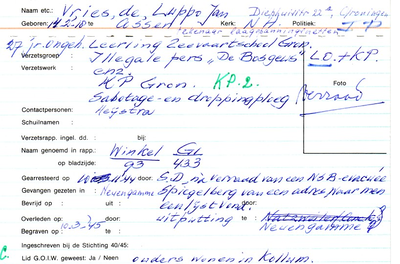 Naam etc.: Vries, de, Luppo Jan Diezerstr 22a, Groningen
Geboren: te: Assen Kerk: N.H. Politiek:
27 jr. Ongeh. Leerling Zeevaartschool Gron.
Verzetsgroep: Illegale pers „De Bosgeus" L.O. + KP.
Verzetswerk: enz.
KP Gron. KP. 2.
Sabotage- en droppingploeg
Foto
Verraad
Contactpersonen: Heystra
Schuilnamen:
Verzetsrapp. ingel. dd.: bij:
Naam genoemd in rapp.: Winkel GL
op bladzijde: 93 433
Gearresteerd op door: S.D., na verraad van een NSB-evacuée
Gevangen gezeten in: Neuengamme Spiegelberg van een adres waar men
Bevrijd op: uit: door: een lijst vond.
Overleden op: door: uitputting te: Neuengamme?
Begraven op: 10.3.'45
Ingeschreven bij de Stichting 40/45:
Lid G.O.I.W. geweest: Ja / Neen ouders wonen in Kollum.